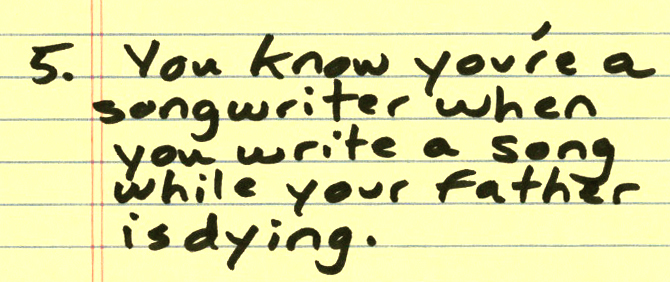 5. You know you're a
songwriter when
you write a song
while your father
is dying.